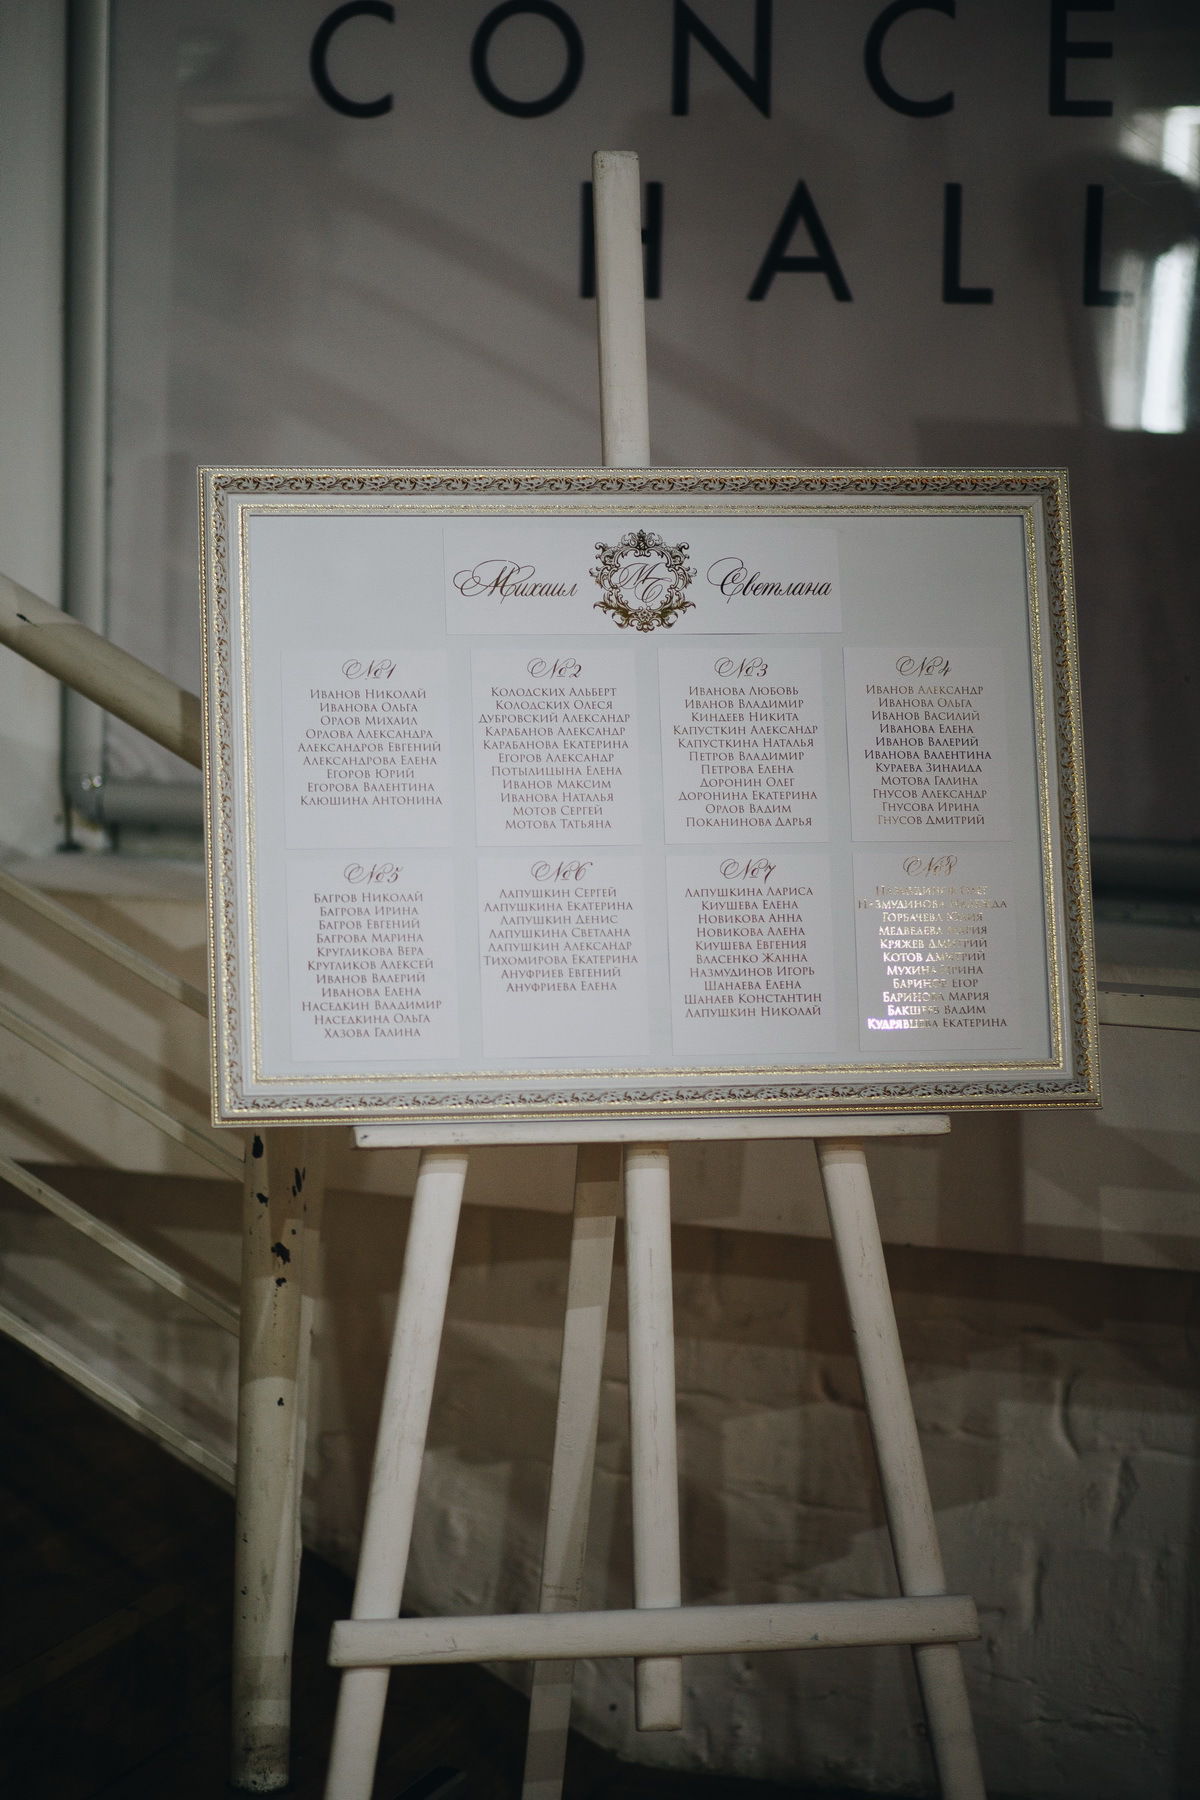 CONCE
HALL
Михаил МС Светлана
№1
Иванов Николай
Иванова Ольга
Орлов Михаил
Орлова Александра
Александров Евгений
Александрова Елена
Егоров Юрий
Егорова Валентина
Клюшина Антонина
№2
Колодских Альберт
Колодских Олеся
Дубровский Александр
Карабанов Александр
Карабанова Екатерина
Егоров Александр
Потылицына Елена
Иванов Максим
Иванова Наталья
Мотов Сергей
Мотова Татьяна
№3
Иванова Любовь
Иванов Владимир
Киндеев Никита
Капусткин Александр
Капусткина Наталья
Петров Владимир
Петрова Елена
Доронин Олег
Доронина Екатерина
Орлов Вадим
Поканинова Дарья
№4
Иванов Александр
Иванова Ольга
Иванов Василий
Иванова Елена
Иванов Валерий
Иванова Валентина
Кураева Зинаида
Мотова Галина
Гнусов Александр
Гнусова Ирина
Гнусов Дмитрий
№5
Багров Николай
Багрова Ирина
Багров Евгений
Багрова Марина
Кругликова Вера
Кругликов Алексей
Иванов Валерий
Иванова Елена
Наседкин Владимир
Наседкина Ольга
Хазова Галина
№6
Лапушкин Сергей
Лапушкина Екатерина
Лапушкин Денис
Лапушкина Светлана
Лапушкин Александр
Тихомирова Екатерина
Ануфриев Евгений
Ануфриева Елена
№7
Лапушкина Лариса
Киушева Елена
Новикова Анна
Новикова Алена
Киушева Евгения
Власенко Жанна
Назмудинов Игорь
Шанаева Елена
Шанаев Константин
Лапушкин Николай
№8
Назмудинов Олег
Назмудинова Надежда
Горбачева Юлия
Медведева Мария
Кряжев Дмитрий
Котов Дмитрий
Мухина Ирина
Баринов Егор
Баринова Мария
Бакшеев Вадим
Кудрявцева Екатерина